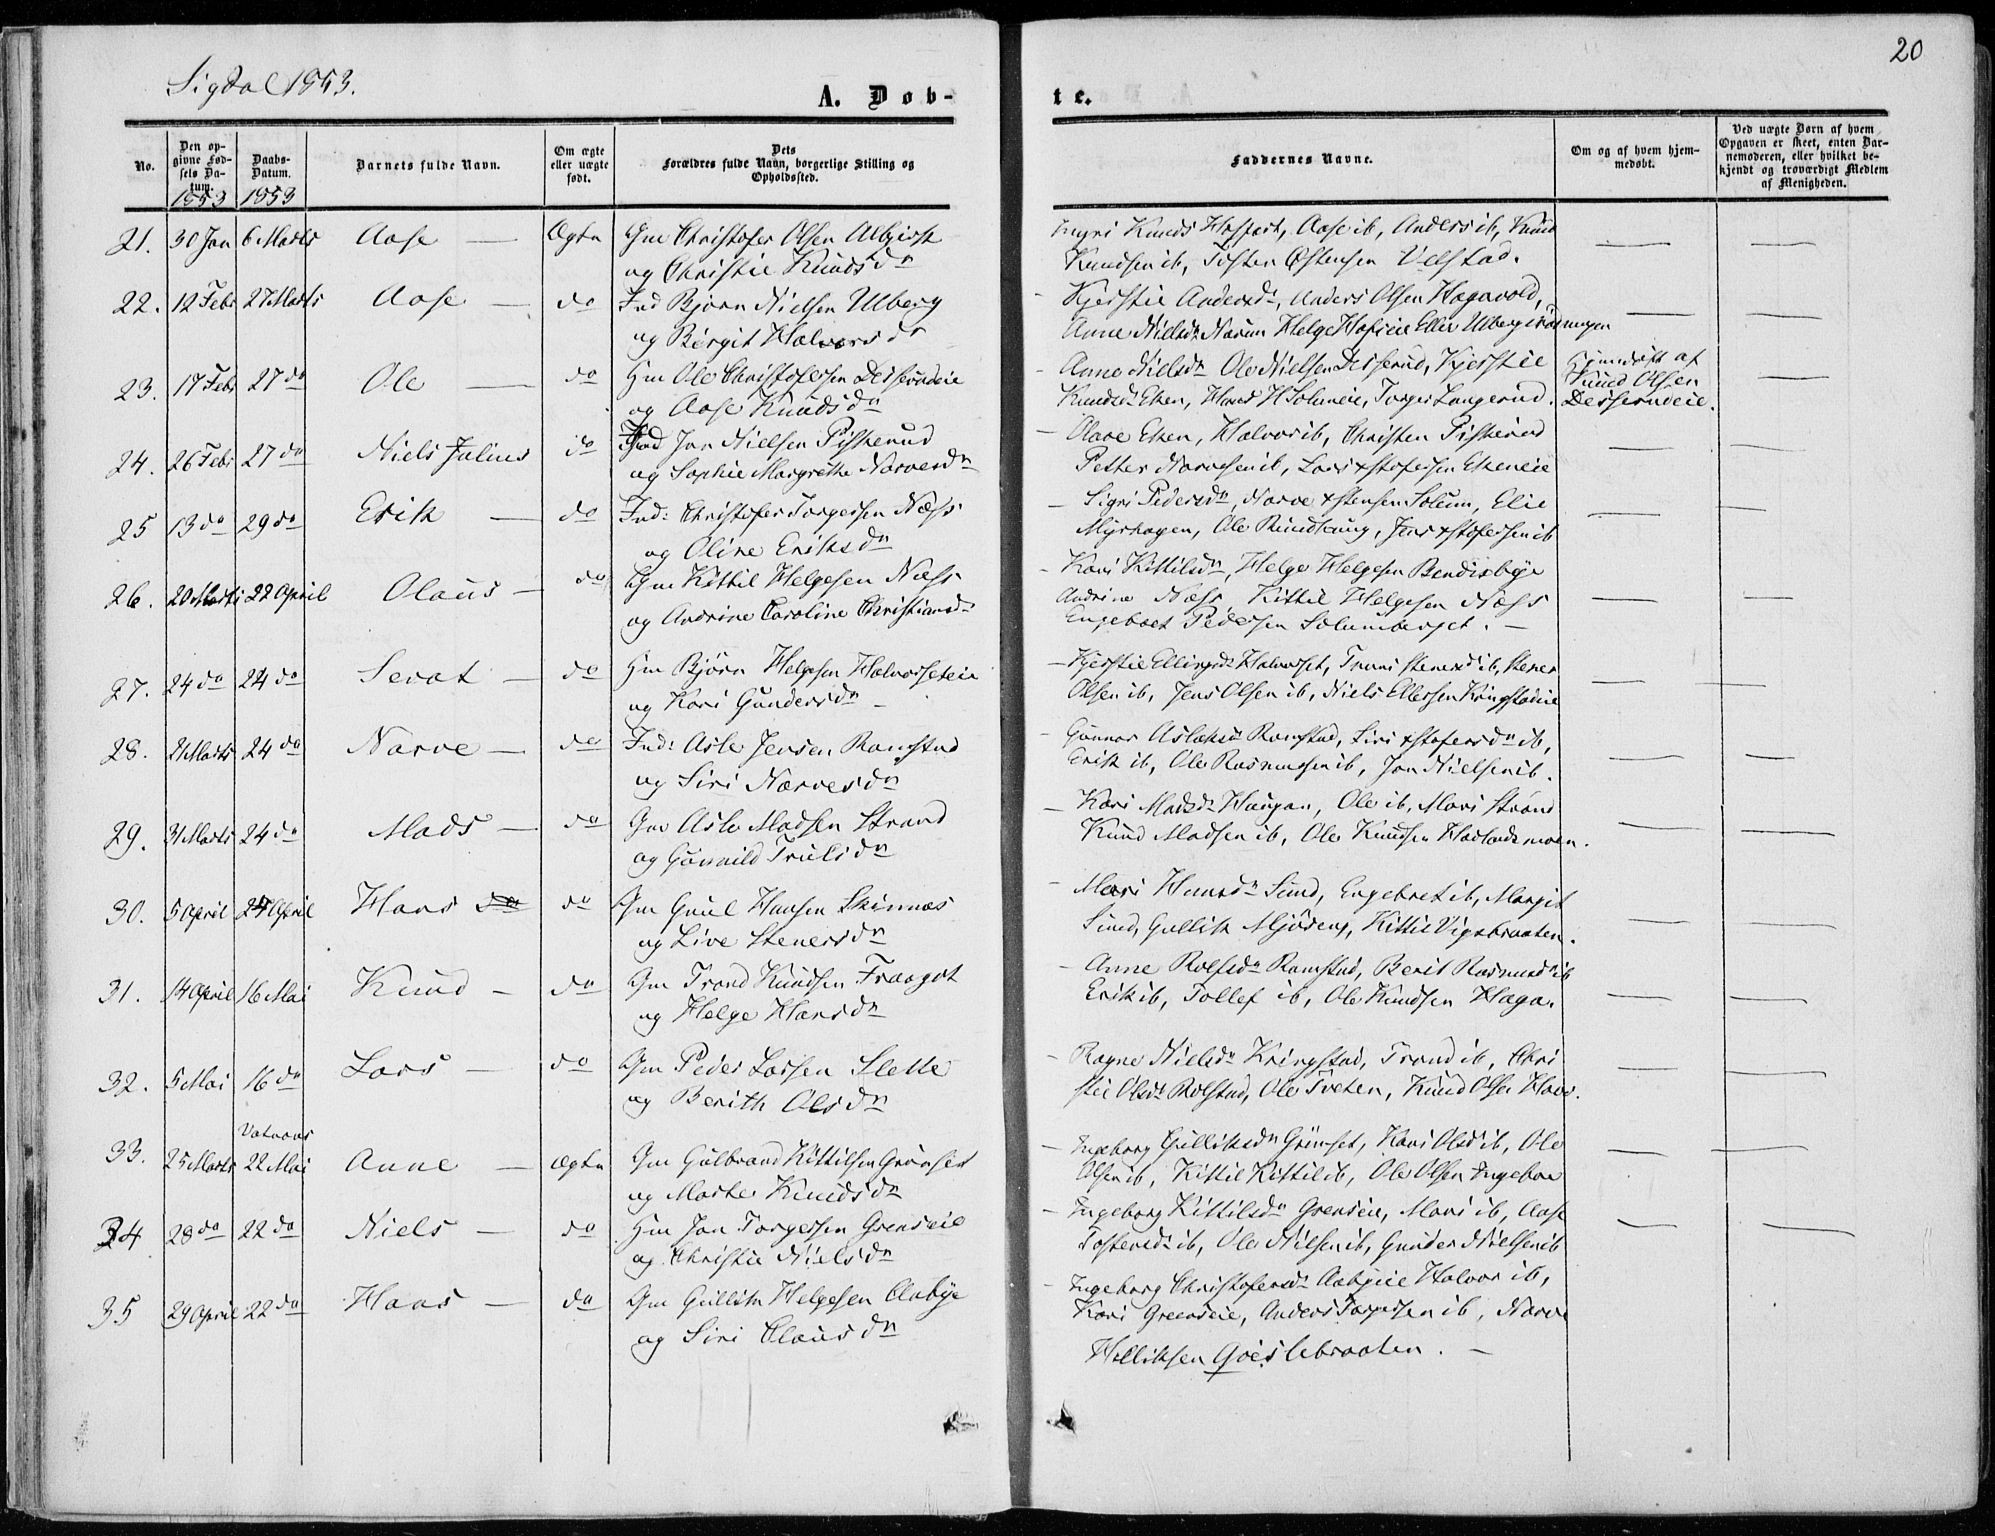 20
Sigdal 1853.
A. Døb-
te.
No.
Den op-
givne Fød-
sels Da-
tum.
1853
Daabs-
Datum.
1853
Barnets fulde Navn.
Om ægte
eller uægte
født.
Dets
Forældres fulde Navn, borgerlige Stilling og
Opholdssted.
Faddernes Navne.
Om og af hvem hjem-
medøbt.
Ved uægte Børn af hvem
Opgaven er skeet, enten Bar-
nemoderen, eller hvilket be-
kjendt og troværdigt Medlem
af Menigheden.
21. 30 Jan 6 Marts Aase — Ægte Gm Christofer Olsen
og Christie Knudsdn
Ingri Knuds Aase ib, Anders ib, Knud
Knudsen ib, Tosten Østensen Velstad.
22. 12 Febr 27 Marts Aase — do Ind Bjørn Nielsen Ulberg
og Birgit Halvorsdn
Kjerstie Andersdn, Anders Olsen Hagavold,
Anne Nielsdn Narum Helge
23. 17 Febr 27 do Ole — do Hm Ole Christofersen Desserudeie
og Aase Knudsdn
Anne Nielsdn Ole Nielsen Desserud, Kjerstie
Knudsdn Eken, Hans H Solumeie, Torger Langerud.
Hjemdøbt af
Knud Olsen
Desserudeie.
24. 26 Febr 27 do Niels Julius do Ind Jan Nielsen Piskerud
og Sophie Margrethe Narvesdn
Olave Eken, Halvor ib, Christen Piskerud
Petter Narvesen ib, Lars xstofersen Ekeneie
25 13 do 29 do Erik — do Ind: Christofer Torgersen Næss
og Oline Eriksdn
Sigri Pedersdn, Narve xstensen Solum, Elie
Myrhagen, Ole Rundhaug, Jens xstofersen ib
26. 20 Marts 22 April Olaus — do Gm Kittil Helgesen Næss
og Andrine Caroline Christiansd:
Kari Kittilsdn, Helge Helgesen Bendixbye
Andrine Næss, Kittil Helgesen Næss
Engebret Pedersen Solumberget. —
27. 24 do 24 do Serat — do Hm Bjørn Helgesen Halvorseteie
og Kari Gundersdn —
Kjerstie Ellingsdn Halvorset, Truni Stenersd ib, Stener
Olsen ib, Jens Olsen ib, Niels Ellefsen Kringstadeie
28. 21 Marts 24 do Narve — do Ind: Asle Jensen Ramstad
og Siri Narvesdn
Gunnor Aslaksdn Ramstad, Siri xstofersdn ib,
Erik ib, Ole Rasmussen ib, Jan Nielsen ib.
29. 31 Marts 24 do Mads — do Gm Asle Madsen Strand
og Gunnild Trulsdn
Kari Madsdn Haugan, Ole ib, Mari Strand
Knud Madsen ib, Ole Knudsen Havlandsmoen.
30. 5 April 24 April Hans do do Gm Gûul Hansen Skinnæs
og Live Stenersdn
Mari Hansdn Sund, Engebret ib, Margit
Sund, Gullik Mjøseng, Kittil Vigsbraaten.
31. 14 April 16 Mai Knud — do Gm Trond Knudsen Fraagot
og Helge Hansdn
Anne Rolfsdn Ramstad, Berit Rasmusdn ib
Erik ib, Tollef ib, Ole Knudsen Haga.
32. 5 Mai 16 do Lars — do Gm Peder Larsen Slette
og Berith Olsdn
Ragne Nielsdn Kringstad, Trond ib, Chri
stie Olsdn Rolstad, Ole Tveten, Knud Olsen Haas.
33. 25 Marts Vatnaas 22 Mai Anne — Ægte Gm Gulbrand Kittilsen Grønset
og Marte Knudsdn
Ingeborg Gulliksdn Grønset, Kari Olsd ib, Ole
Olsen ib, Kittil Kittil ib, Ole Olsen
34 28 do 22 do Niels — do Hm Jan Torgersen Grenseie
og Christie Nielsdn
Ingeborg Kittilsdn Grenseie, Mari ib, Aase
Tostensdn ib, Ole Nilsen ib, Gunder Nielsen ib
35 29 April 22 do Haas — do Gm Gullik Helgesen Aabye
og Siri Clausdn
Ingeborg Christofersdn Aabyeie Halvor ib,
Kari Greenseie, Anders Torgersen ib, Narve
Helliksen Gvislebraaten. —